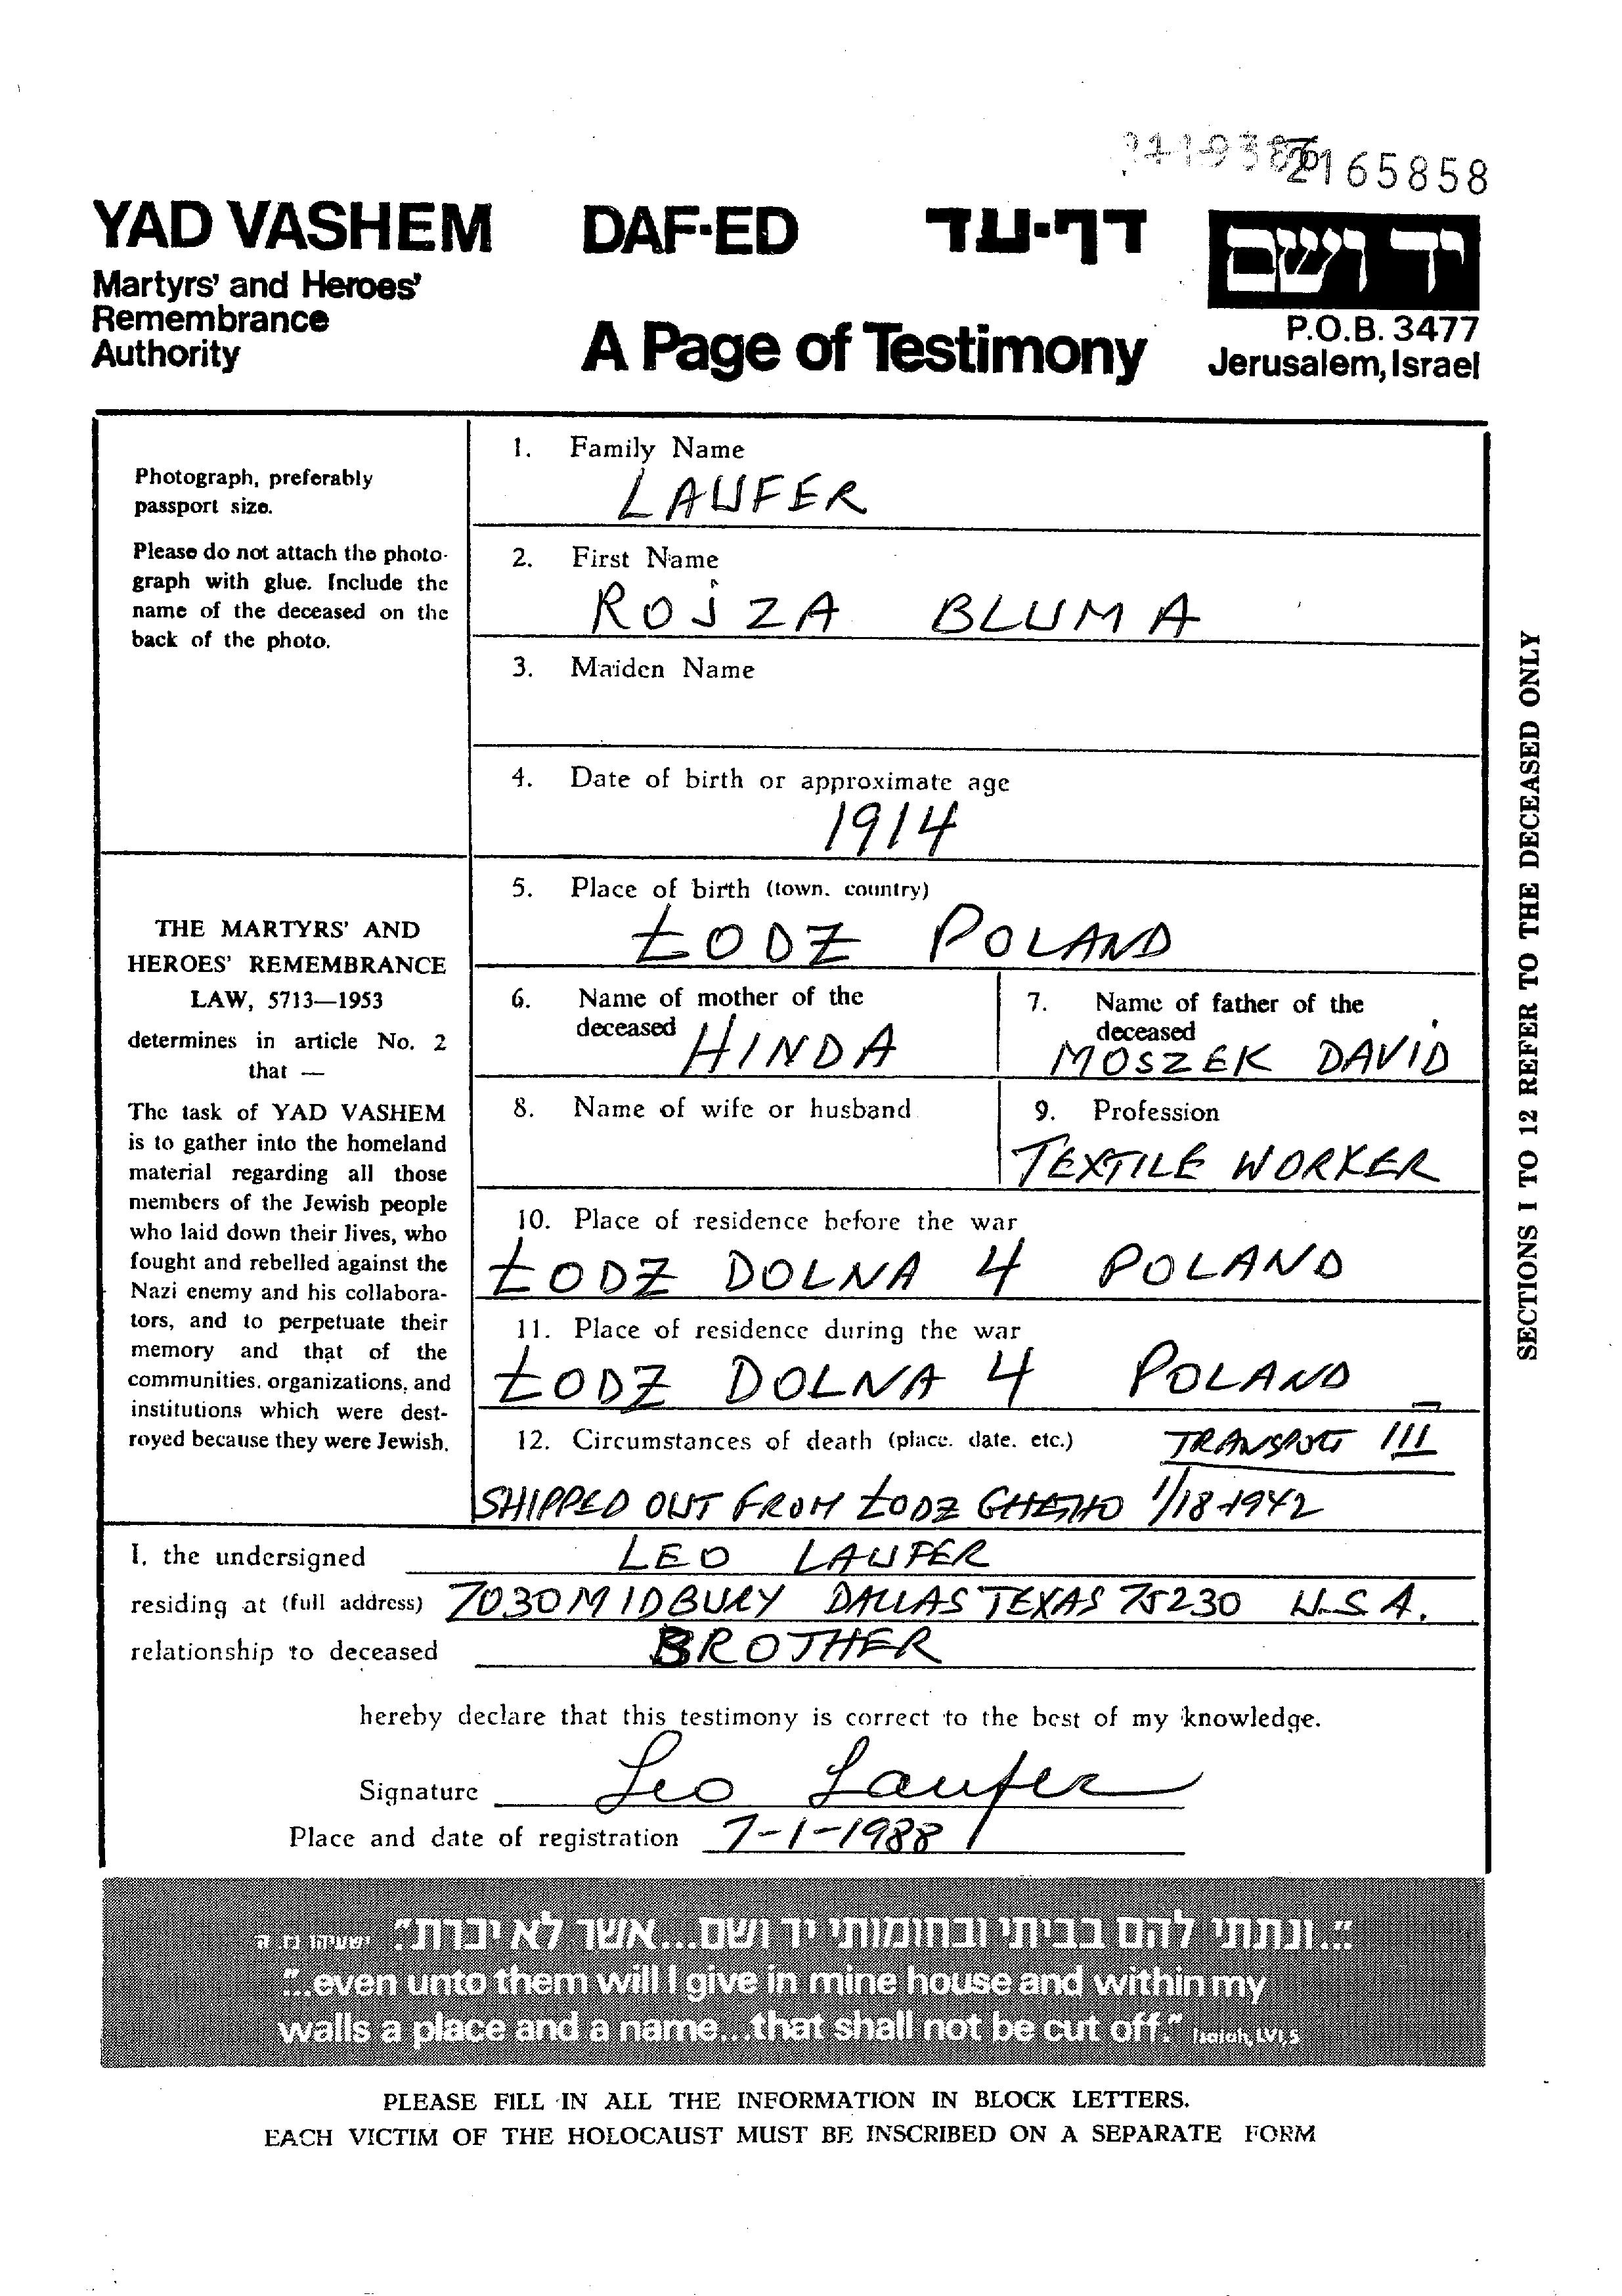 2165858
YAD VASHEM DAF-ED דף-עד יד ושם
Martyrs' and Heroes'
Remembrance
Authority
A Page of Testimony
P.O.B. 3477
Jerusalem, Israel
Photograph, preferably
passport size.
Please do not attach the photo-
graph with glue. Include the
name of the deceased on the
back of the photo.
THE MARTYRS' AND
HEROES' REMEMBRANCE
LAW, 5713—1953
determines in article No. 2
that —
The task of YAD VASHEM
is to gather into the homeland
material regarding all those
members of the Jewish people
who laid down their lives, who
fought and rebelled against the
Nazi enemy and his collabora-
tors, and to perpetuate their
memory and that of the
communities, organizations, and
institutions which were dest-
royed because they were Jewish.
1. Family Name
LAUFER
2. First Name
ROJZA BLUMA
3. Maiden Name
4. Date of birth or approximate age
1914
5. Place of birth (town, country)
ŁODZ POLAND
6. Name of mother of the
deceased HINDA
7. Name of father of the
deceased
MOSZEK DAVID
8. Name of wife or husband
9. Profession
TEXTILE WORKER
10. Place of residence before the war
ŁODZ DOLNA 4 POLAND
11. Place of residence during the war
ŁODZ DOLNA 4 POLAND
12. Circumstances of death (place, date, etc.) TRANSPORT III
SHIPPED OUT FROM ŁODZ GHETTO 1/18-1942
SECTIONS 1 TO 12 REFER TO THE DECEASED ONLY
I, the undersigned LEO LAUFER
residing at (full address) 7030 MIDBURY DALLAS TEXAS 75230 U.S.A.
relationship to deceased BROTHER
hereby declare that this testimony is correct to the best of my knowledge.
Signature Leo Laufer
Place and date of registration 7-1-1988
"...ונתתי להם בביתי ובחומותי יד ושם...אשר לא יכרת". ישעיהו נו, ה
"...even unto them will I give in mine house and within my
walls a place and a name...that shall not be cut off." Isaiah, LVI, 5
PLEASE FILL IN ALL THE INFORMATION IN BLOCK LETTERS.
EACH VICTIM OF THE HOLOCAUST MUST BE INSCRIBED ON A SEPARATE FORM